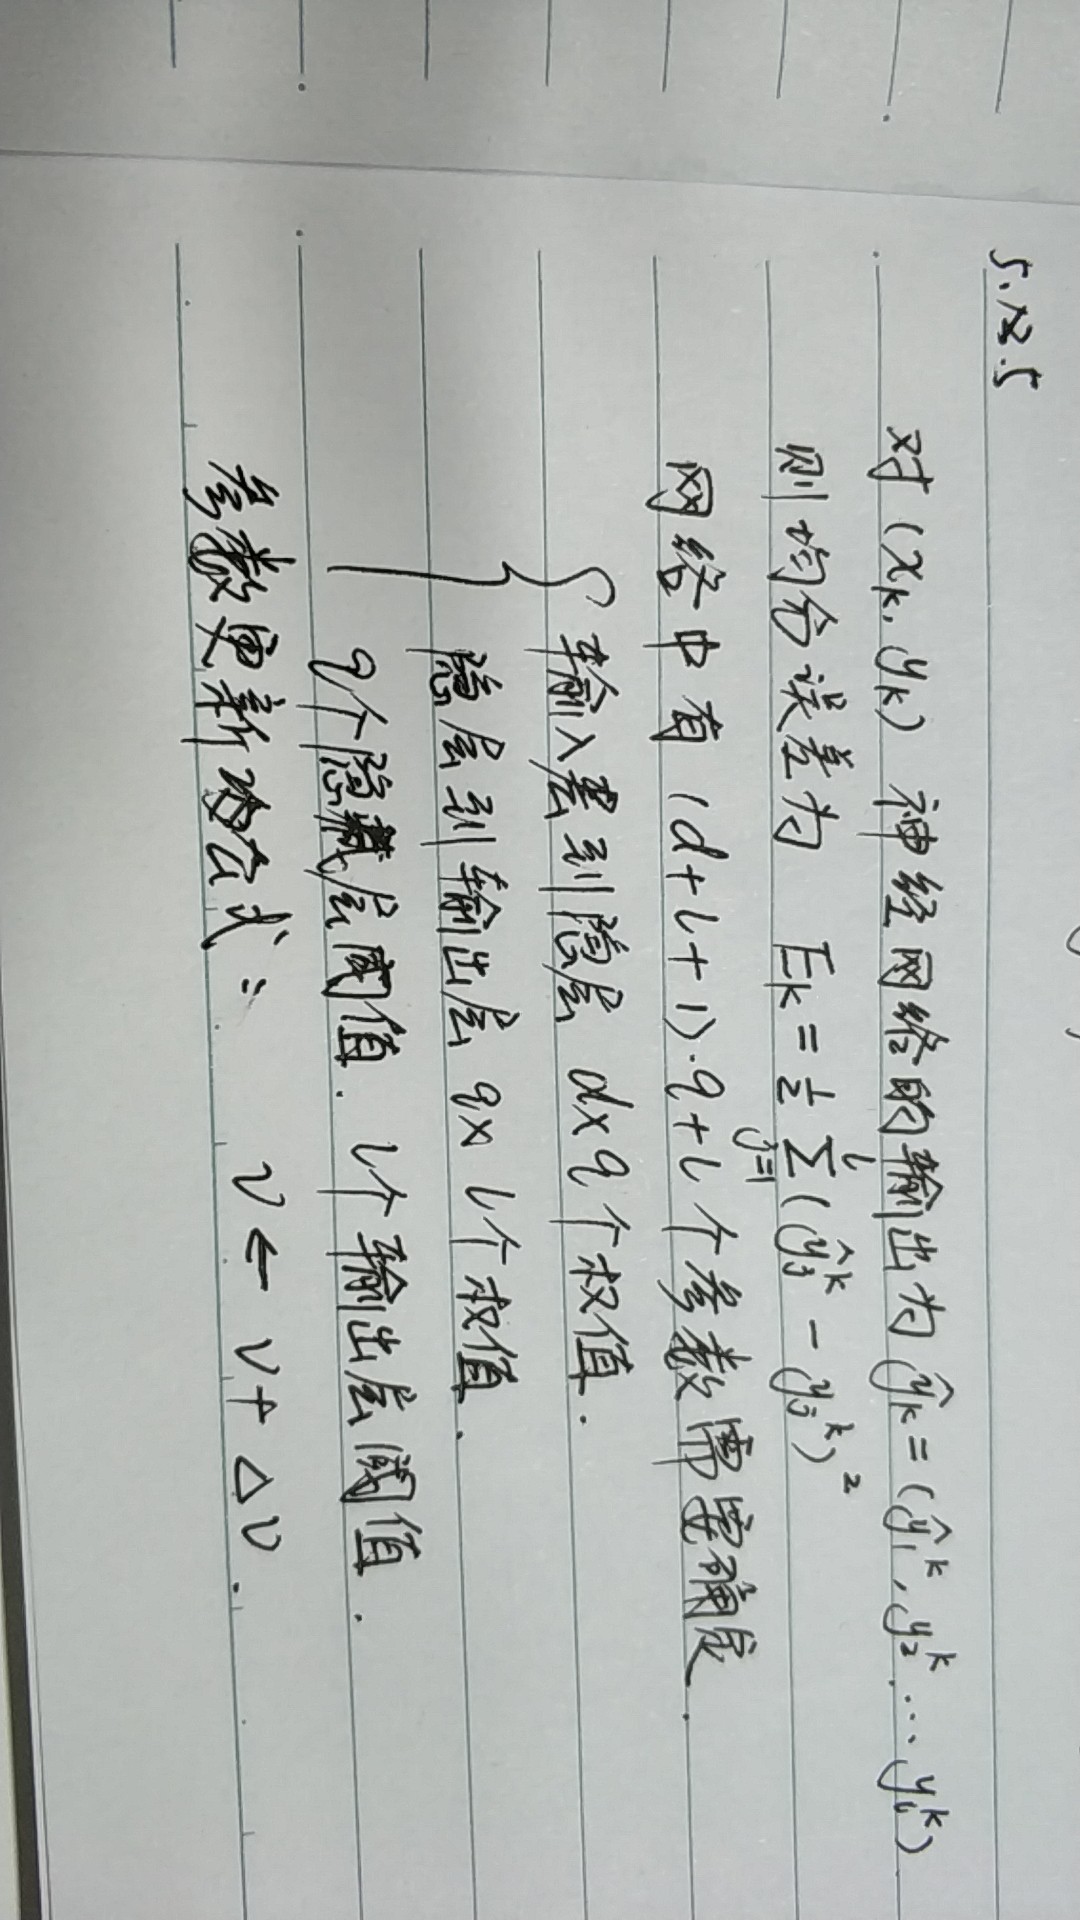 5.2.5
对 (xk, yk) 神经网络的输出为 ŷk = (ŷ₁ᵏ, y₂ᵏ ... yₗᵏ)
则均分误差为 Ek = ½ Σⱼ₌₁ˡ (ŷⱼᵏ - yⱼᵏ)²
网络中有 (d+l+1)·q+l 个参数需要确定.
{ 输入层到隐层 d×q个权值.
隐层到输出层 q×l个权值.
q个隐藏层阈值. l个输出层阈值.
参数更新公式: v ← v + Δv.